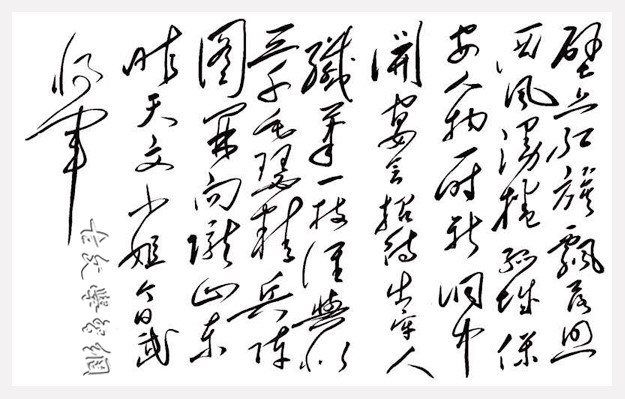 壁上红旗飄落照
西风漫捲孤城保
安人物一时新洞中
開宴会招待出牢人
纖筆一枝谁與似
三千毛瑟精兵陣
图開向陇山东
昨天文小姐今日武
将军